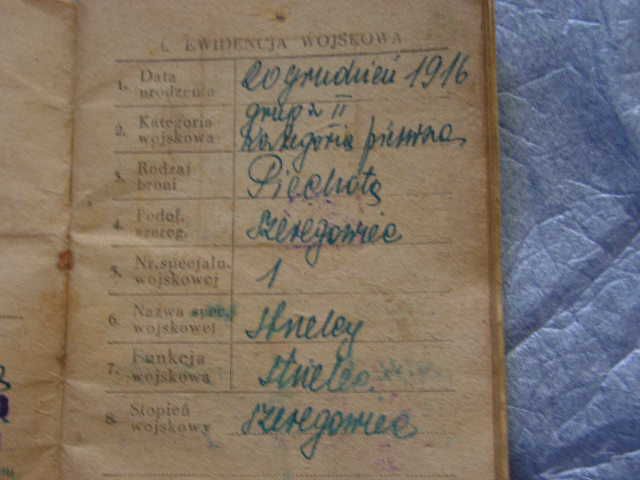 I. EWIDENCJA WOJSKOWA
1. Data urodzenia
20 grudzień 1916
2. Kategoria wojskowa
grupa II
Kategoria pierwsza
3. Rodzaj broni
Piechota
4. Podof. szereg.
szeregowiec
5. Nr. specjaln. wojskowej
1
6. Nazwa spec. wojskowej
strzelcy
7. Funkcja wojskowa
strzelec
8. Stopień wojskowy
szeregowiec